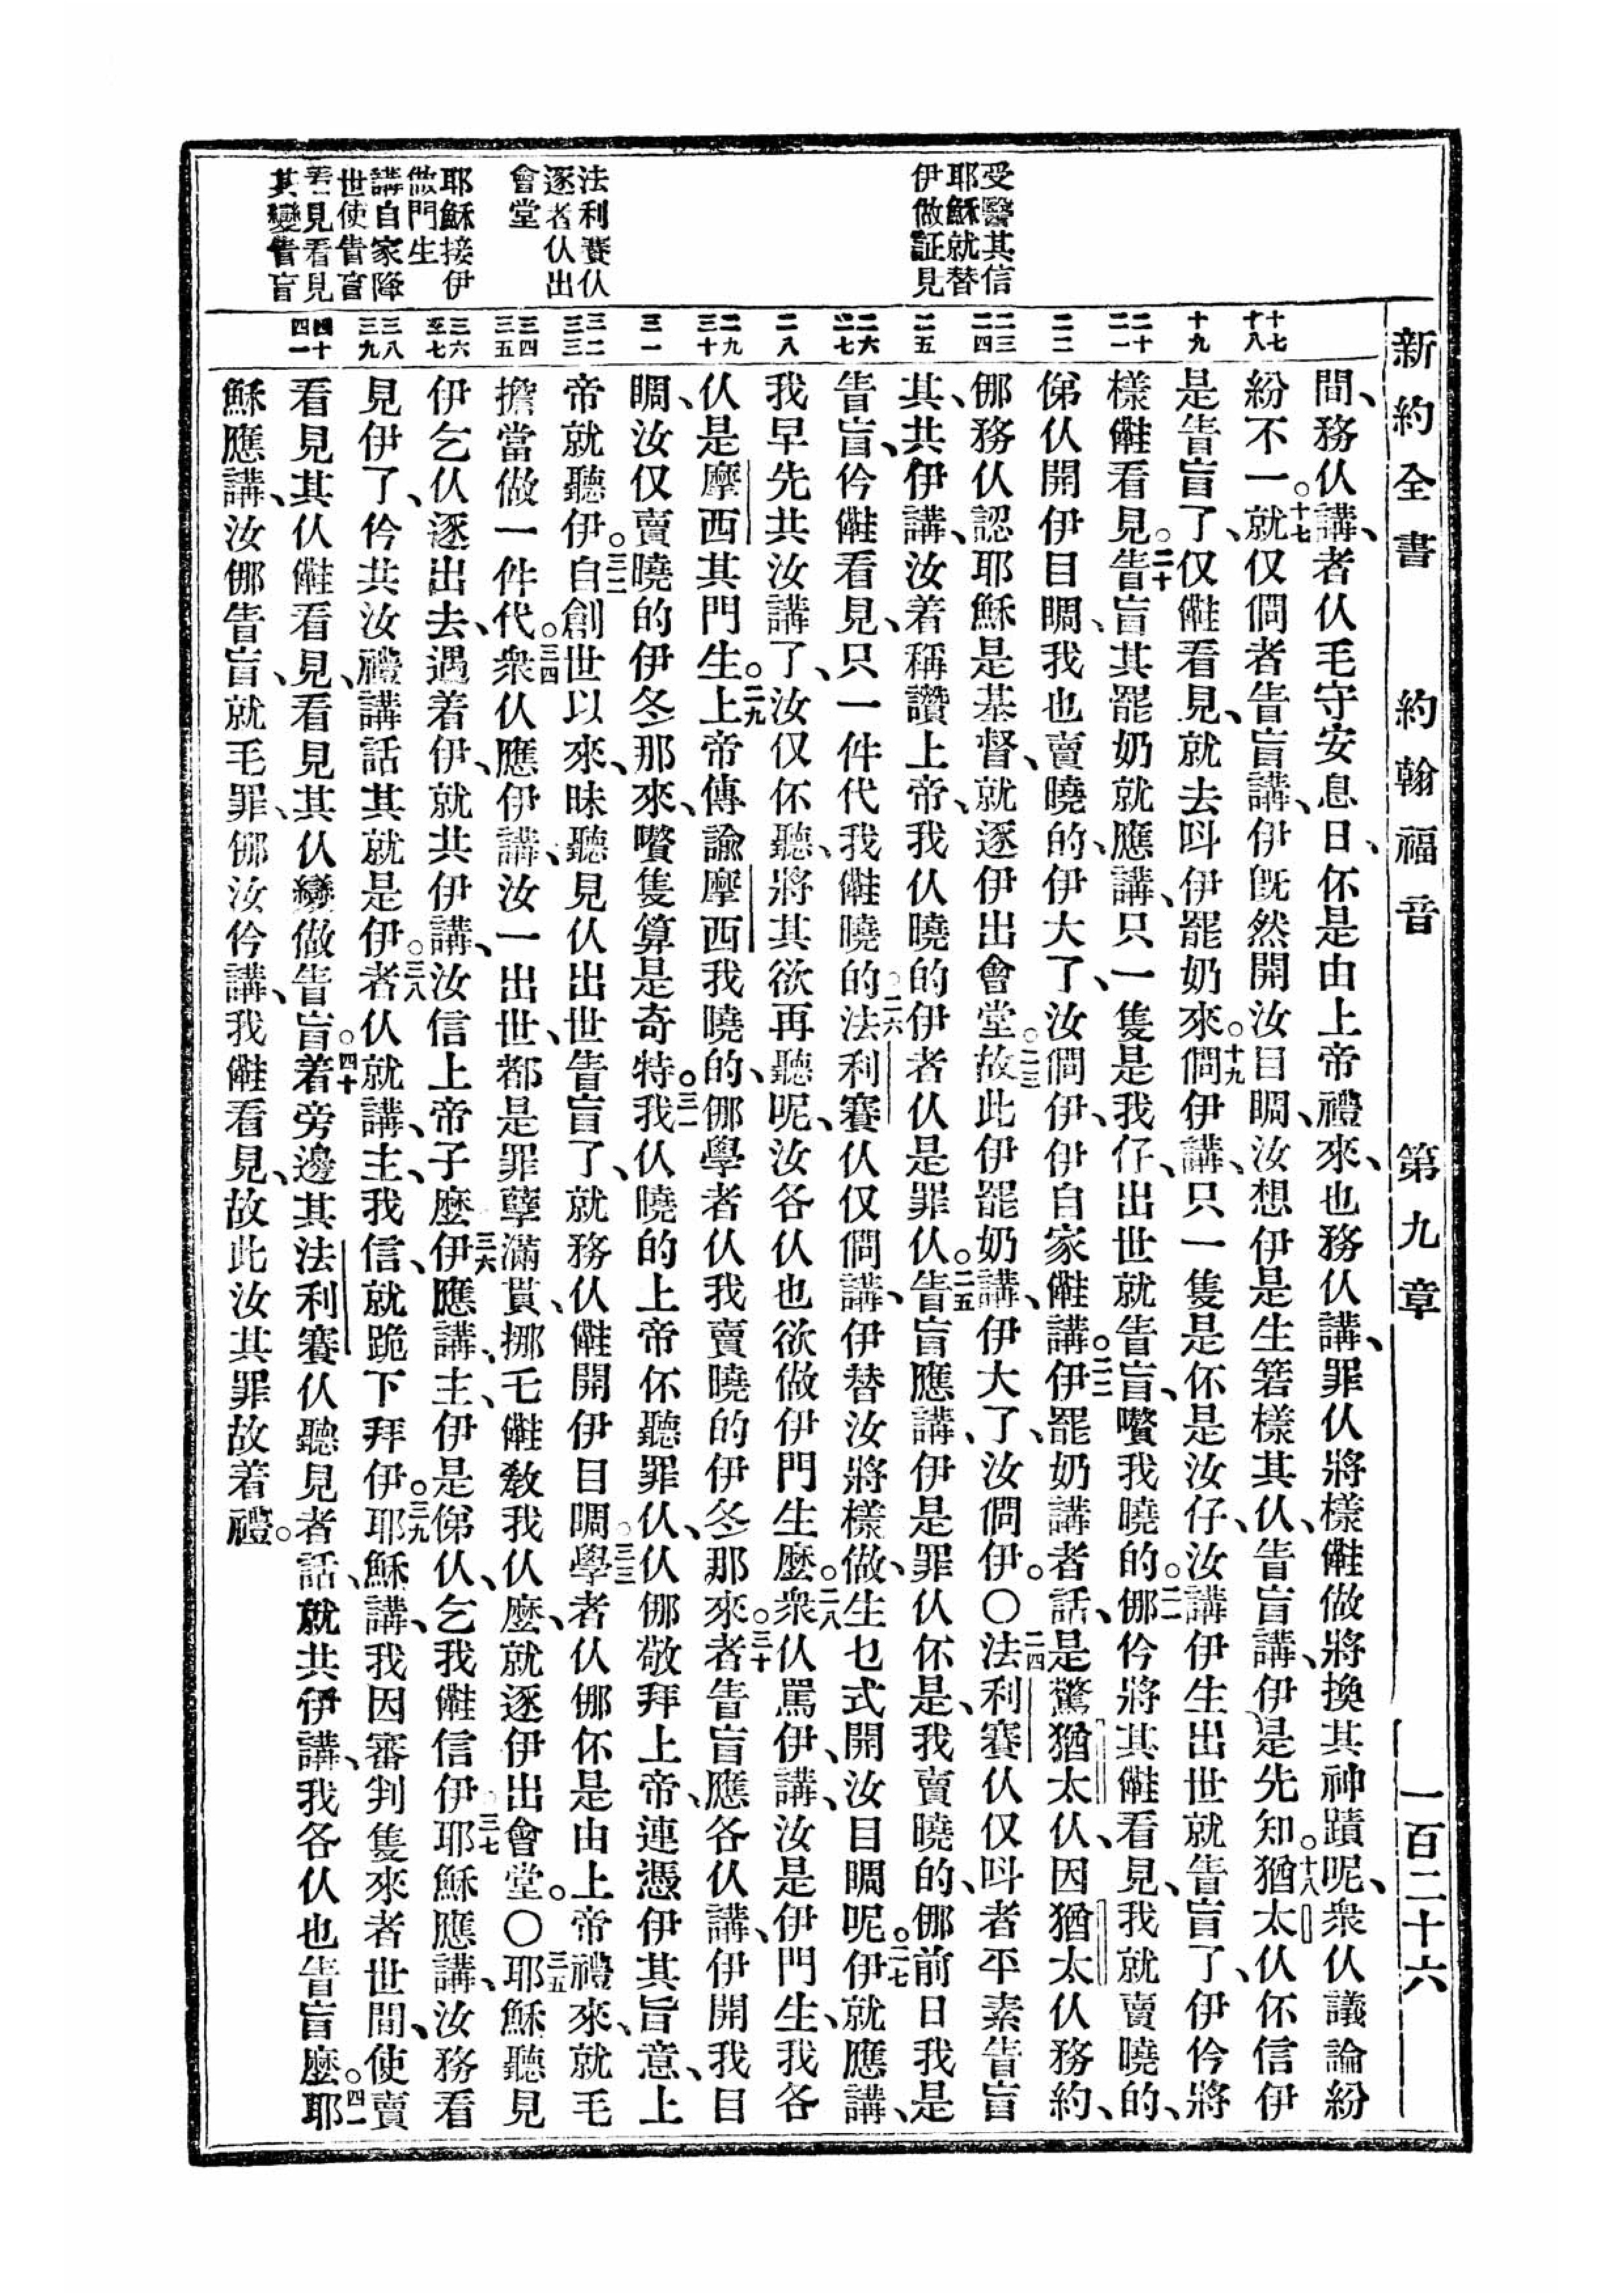 新約全書 約翰福音 第九章 一百二十六
受醫其信
耶穌就替
伊做証見
法利賽仈
逐者仈出
會堂
耶穌接伊
做門生
講自家降
世使眚盲
看見看見
其變眚盲
十七
十八
十九
二十
二一
二二
二三
二四
二五
二六
二七
二八
二九
三十
三一
三二
三三
三四
三五
三六
三七
三八
三九
四十
四一
間、務仈講、者仈毛守安息日、伓是由上帝禮來、也務仈講、罪仈將樣、㒰做將換其神蹟呢、衆仈議論紛
紛不一。十七就仅倜者眚盲講、伊旣然開汝目睭、汝想伊是生箬樣其仈、眚盲講、伊是先知。十八猶太仈伓信伊
是眚盲了、仅㒰看見、就去呌伊罷奶來。十九倜伊講、只一隻是伓是汝仔、汝講伊生出世就眚盲了、伊仱將
樣㒰看見。二十眚盲其罷奶就應講、只一隻是我仔、出世就眚盲、嚽我曉的。二一㑚仱將其㒰看見、我就賣曉的、
俤仈開伊目睭、我也賣曉的、伊大了、汝倜伊、伊自家㒰講。二二伊罷奶講者話、是驚猶太仈、因猶太仈務約、
㑚務仈認耶穌是基督、就逐伊出會堂。二三故此伊罷奶講、伊大了、汝倜伊。〇二四法利賽仈仅呌者平素眚盲
其、共伊講、汝着稱讚上帝、我仈曉的伊者仈是罪仈。二五眚盲應講、伊是罪仈伓是、我賣曉的、㑚前日我是
眚盲、仱㒰看見、只一件代我㒰曉的。二六法利賽仈仅倜講、伊替汝將樣做、生乜式開汝目睭呢。二七伊就應講、
我早先共汝講了、汝仅伓聽、將其欲再聽呢、汝各仈也欲做伊門生麽。二八衆仈駡伊、講、汝是伊門生、我各
仈是摩西其門生。二九上帝傳諭摩西我曉的、㑚學者仈我賣曉的伊冬那來。三十者眚盲應各仈講、伊開我目
睭、汝仅賣曉的伊冬那來、嚽隻算是奇特。三一我仈曉的上帝伓聽罪仈、仈㑚敬拜上帝、連憑伊其旨意、上
帝就聽伊。三二自創世以來、昧聽見仈出世眚盲了、就務仈㒰開伊目睭。三三學者仈㑚伓是由上帝禮來、就毛
擔當做一件代。三四衆仈應伊講、汝一出世、都是罪孽滿貫、挪乇㒰教我仈麽、就逐伊出會堂。〇三五耶穌聽見
伊乞仈逐出去、遇着伊、就共伊講、汝信上帝子麽三六伊應講、主、伊是俤仈、乞我㒰信伊。三七耶穌應講、汝務看
見伊了、仱共汝禮講話其就是伊。三八者仈就講、主、我信、就跪下拜伊。三九耶穌講、我因審判隻來者世間、使賣
看見其仈㒰看見、看見其仈變做眚盲。四十着旁邊其法利賽仈聽見者話、就共伊講、我各仈也眚盲麽。四一耶
穌應講、汝㑚眚盲、就毛罪、㑚汝仱講、我㒰看見、故此汝其罪故着禮。